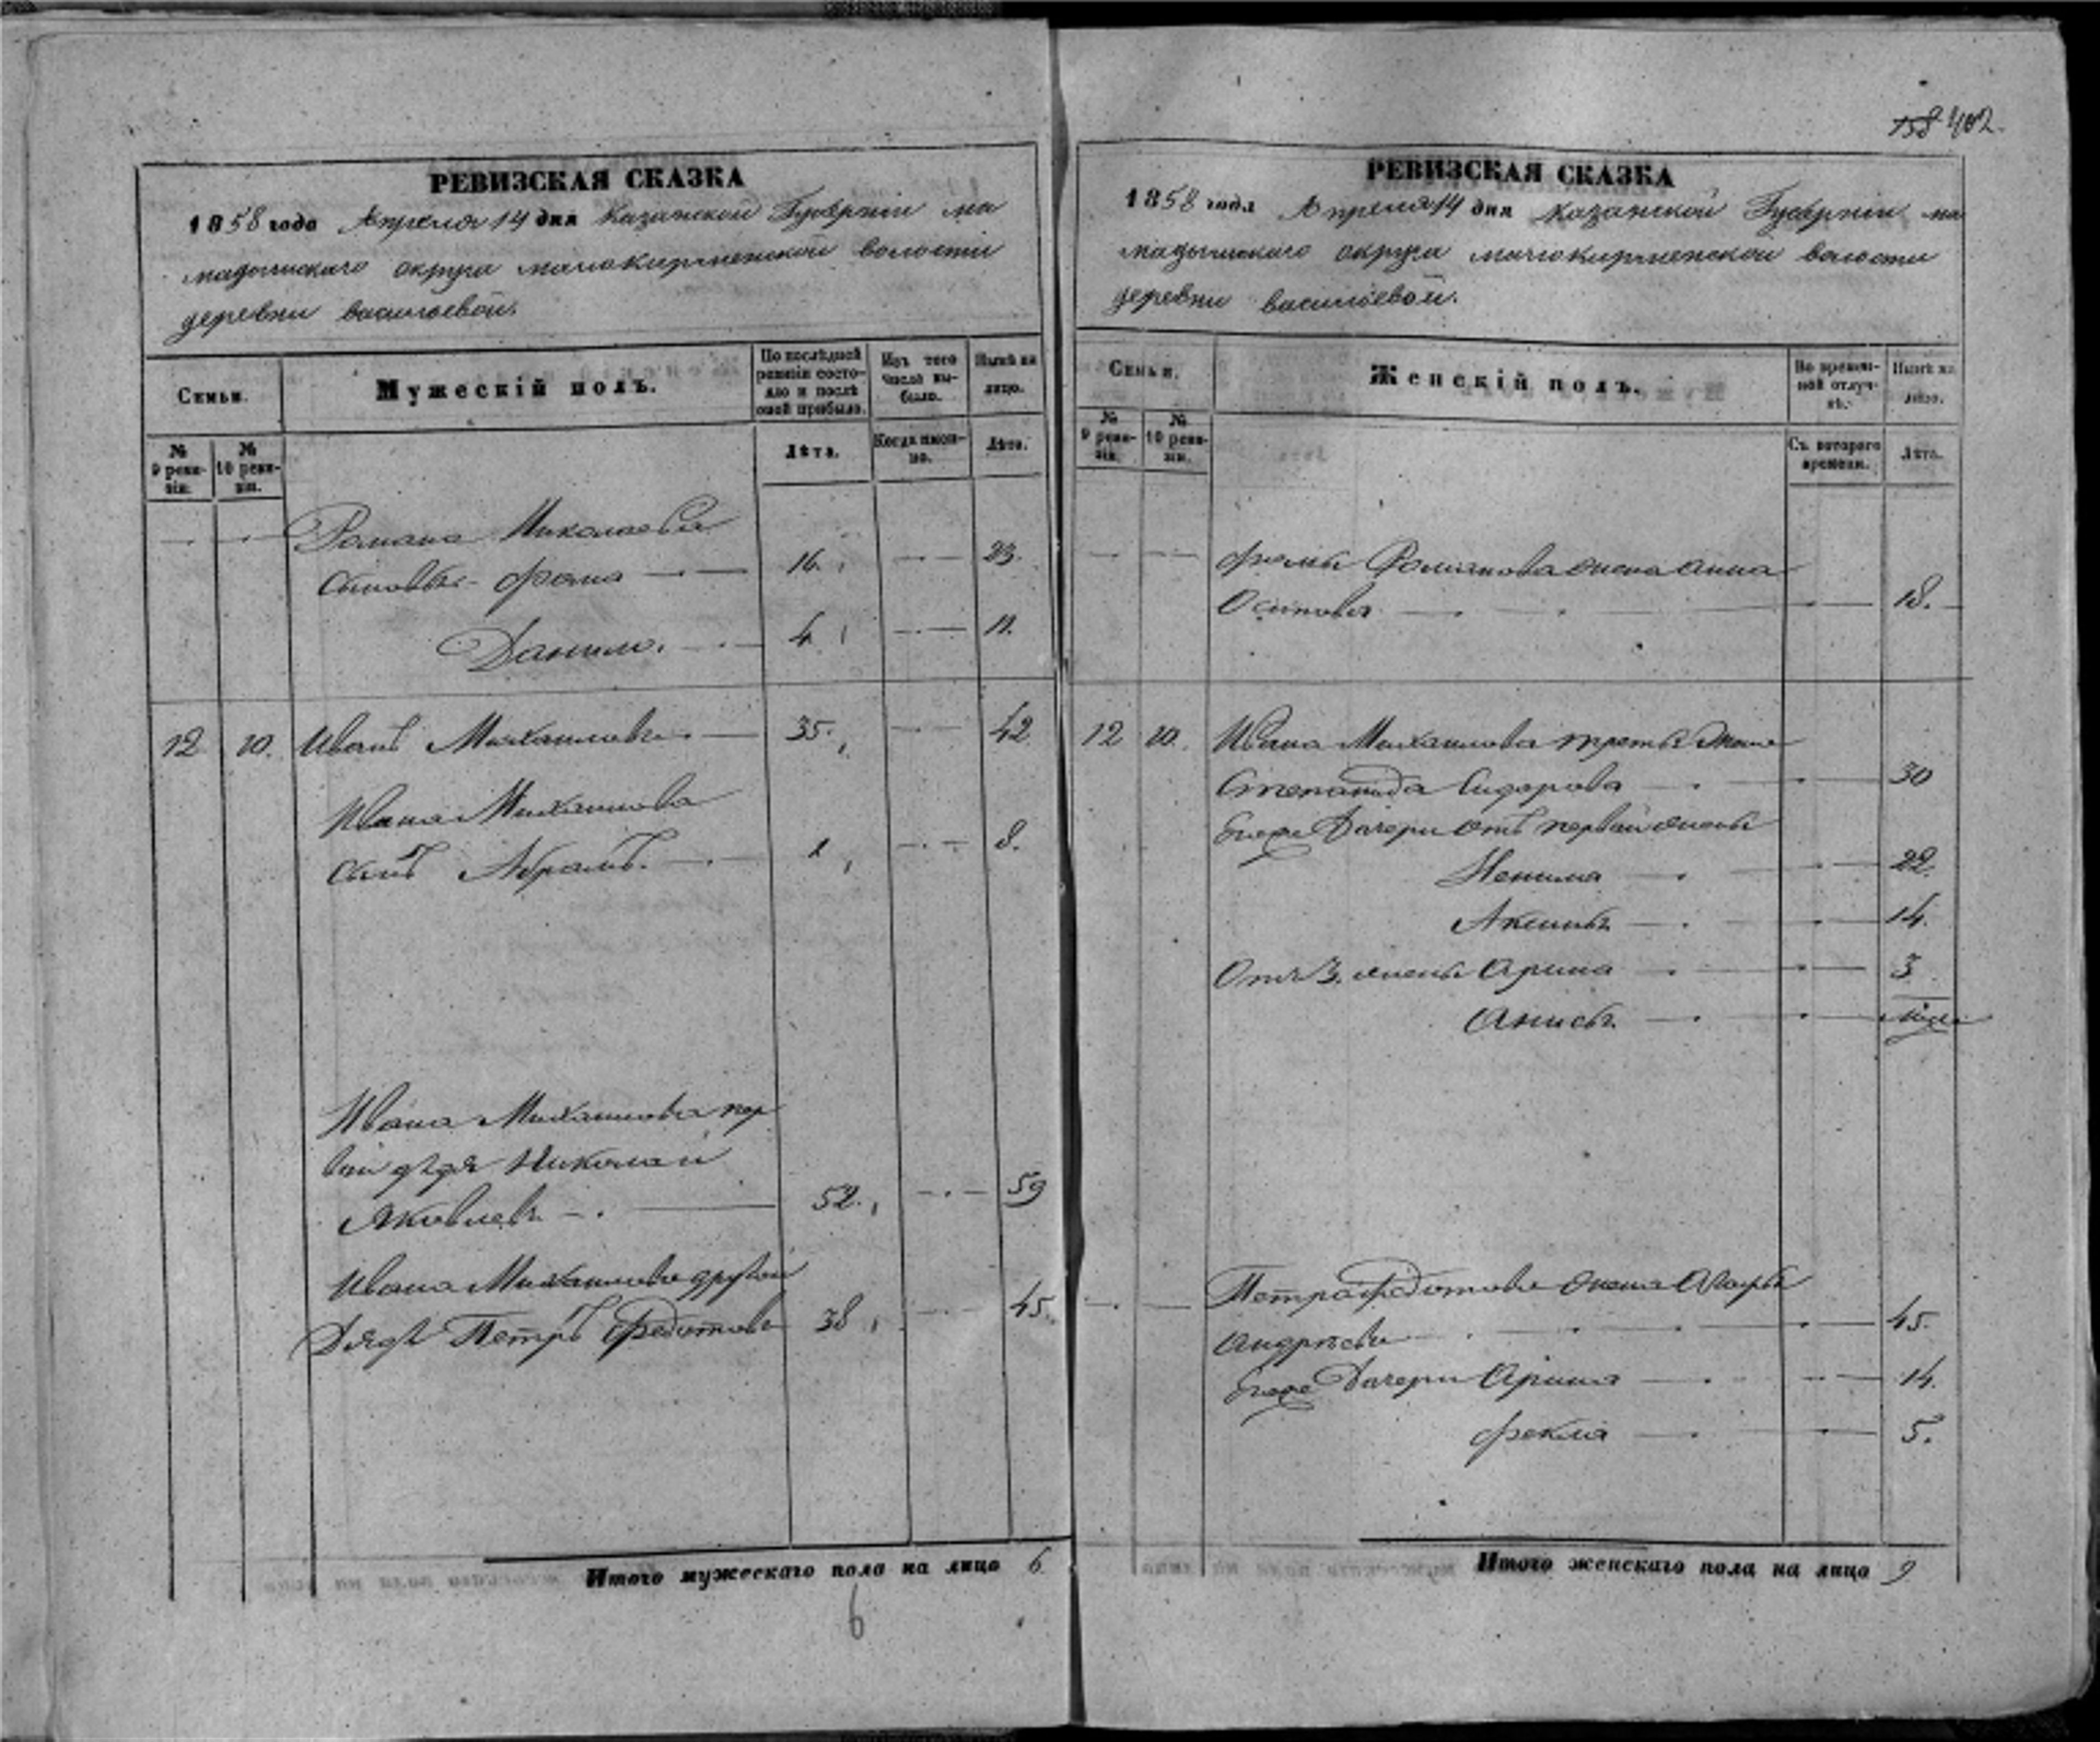 158 402.
РЕВИЗСКАЯ СКАЗКА
1858 года Апреля 14 дня Казанской Губернии ма
мадышскаго округа малокирменской волости
деревни васильевой.
Семьи.
Мужескій полъ.
По послѣдней ревизіи состо-
яло и послѣ оной прибыло.
Изъ того числа вы-
было.
Нынѣ на лицо.
№ 9 реви-
зіи.
№ 10 реви-
зіи.
Лѣта.
Когда имен-
но.
Лѣта.
Романа Николаева
сыновья - фома 16. 23.
Данило. 4. 11.
12 10. Иванъ Михайловъ. 35. 42
Ивана Михайлова
сынъ Абрамъ. 1 8.
Ивана Михайлова пер
вой дядя Николай
Яковлевъ 52. 59
Ивана Михайлова другой
Дядя Петръ Федотовъ 38 45.
Итого мужескаго пола на лицо 6
6
РЕВИЗСКАЯ СКАЗКА
1858 года Апреля 14 дня Казанской Губернии ма
мадышскаго округа малокирменской волости
деревни васильевой.
Семьи.
Женскій полъ.
Во времен-
ной отлуч-
кѣ.
Нынѣ на лицо.
№ 9 реви-
зіи.
№ 10 реви-
зіи.
Съ котораго времени.
Лѣта.
фомы Романова жена анна
Осипова 18.
12 10. Ивана Михайлова третья жена
Степанида Сидорова 30
Егоже Дочери отъ первой жены
22.
Аксинья 14.
Отъ 3. жены Арина 3
Анисья
Петра федотова жена Агафья
андреева 45.
Егоже Дочери Арина 14.
фекла 5.
Итого женскаго пола на лицо 9